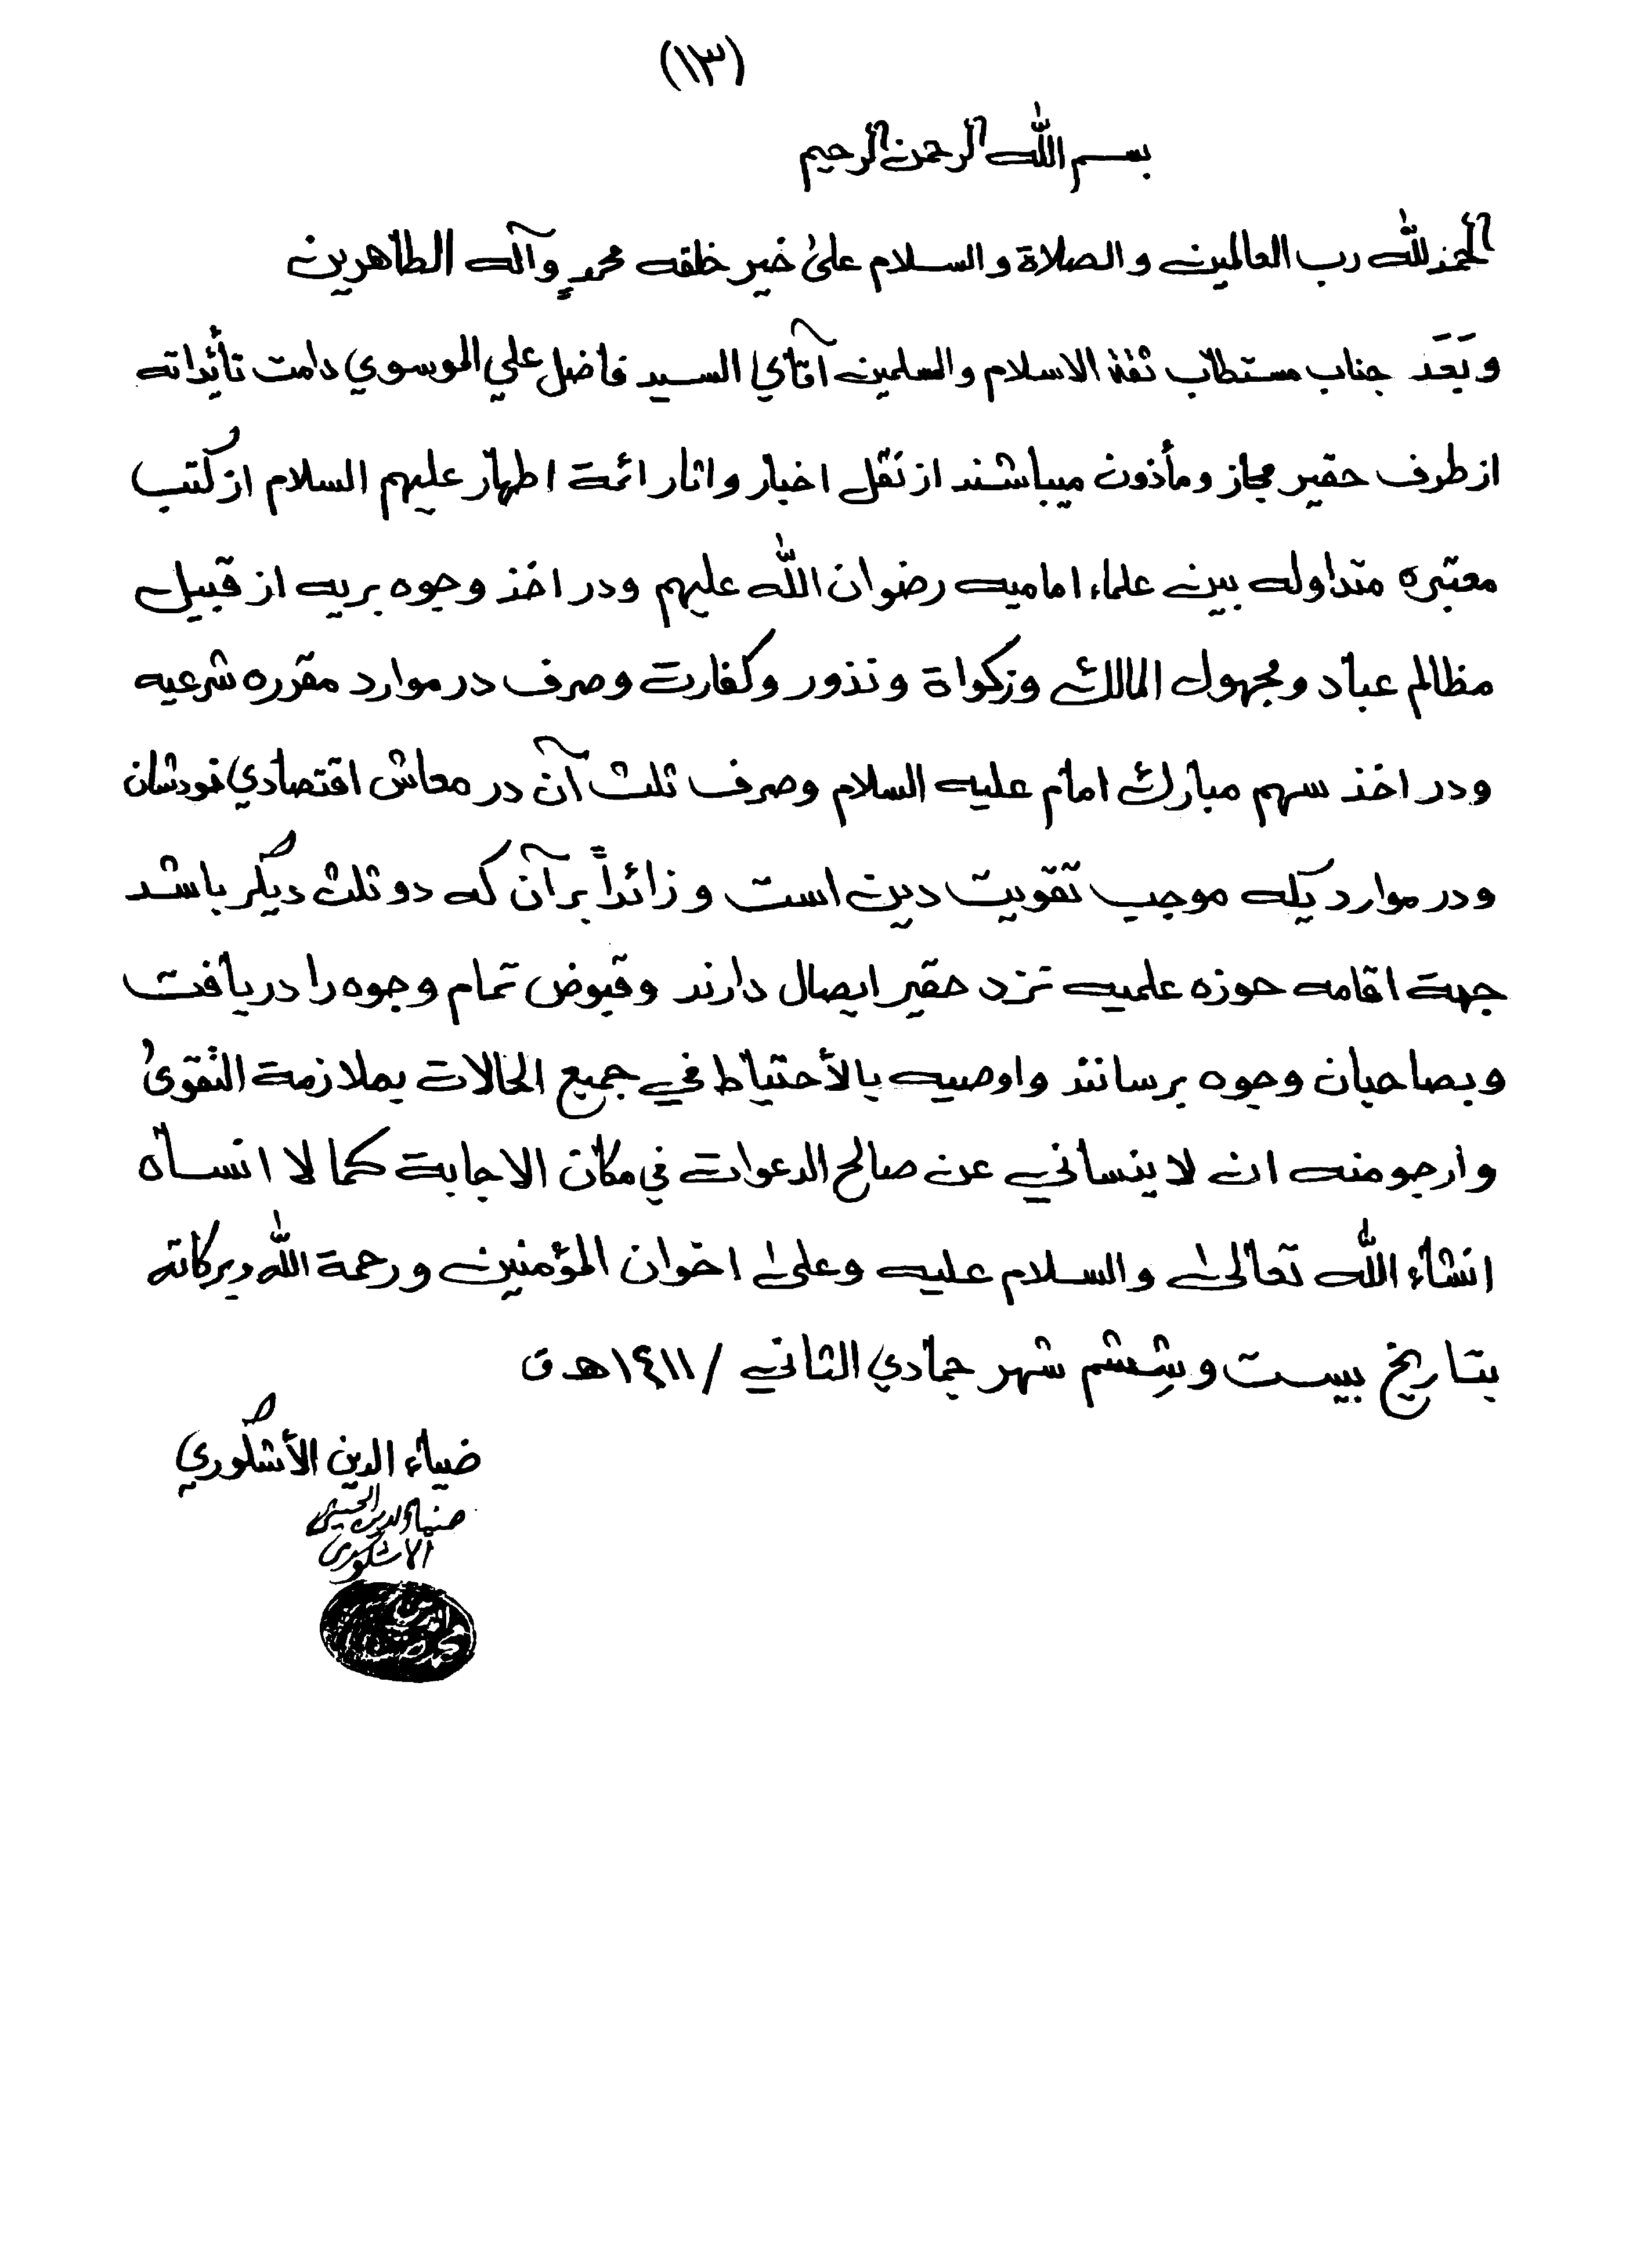 (١٣)
بسم الله الرحمن الرحيم
الحمد لله رب العالمين والصلاة والسلام علىٰ خير خلقه محمدٍ وآله الطاهرين
وبَعَد جناب مستطاب ثقة الاسلام والمسلمين آقاي السيد فاضل علي الموسوي دامت تأئيداته
از طرف حقير مجاز ومأذون ميباشند از نقل اخبار واثار ائمة اطهار عليهم السلام از كتب
معتبره متداوله بين علماء اماميه رضوان الله عليهم ودر اخذ وجوه بريه از قبيل
مظالم عباد ومجهول المالك وزكواة ونذور وكفارت وصرف در موارد مقرره شرعيه
ودر اخذ سهم مبارك امام عليه السلام وصرف ثلث آن در معاش اقتصادي خودشان
ودر موارديكه موجب تقويت دين است وزائداً بر آن كه دو ثلث ديگر باشد
جهة اقامه حوزه علميه نزد حقير ايصال دارند وقبوض تمام وجوه را دريافت
وبصاحبان وجوه برسانند واوصيه بالأحتياط في جميع الحالات بملازمة التقوىٰ
وارجو منه ان لا ينساني عن صالح الدعوات في مكان الاجابة كما لا انساه
انشاء الله تعالىٰ والسلام عليه وعلىٰ اخوان المؤمنين ورحمة الله وبركاته
بتاريخ بيست وشِشم شهر جمادي الثاني /١٤١١هـ ق
ضياء الدين الأشگوري
ضياء الدين الحسيني
الاشكوري